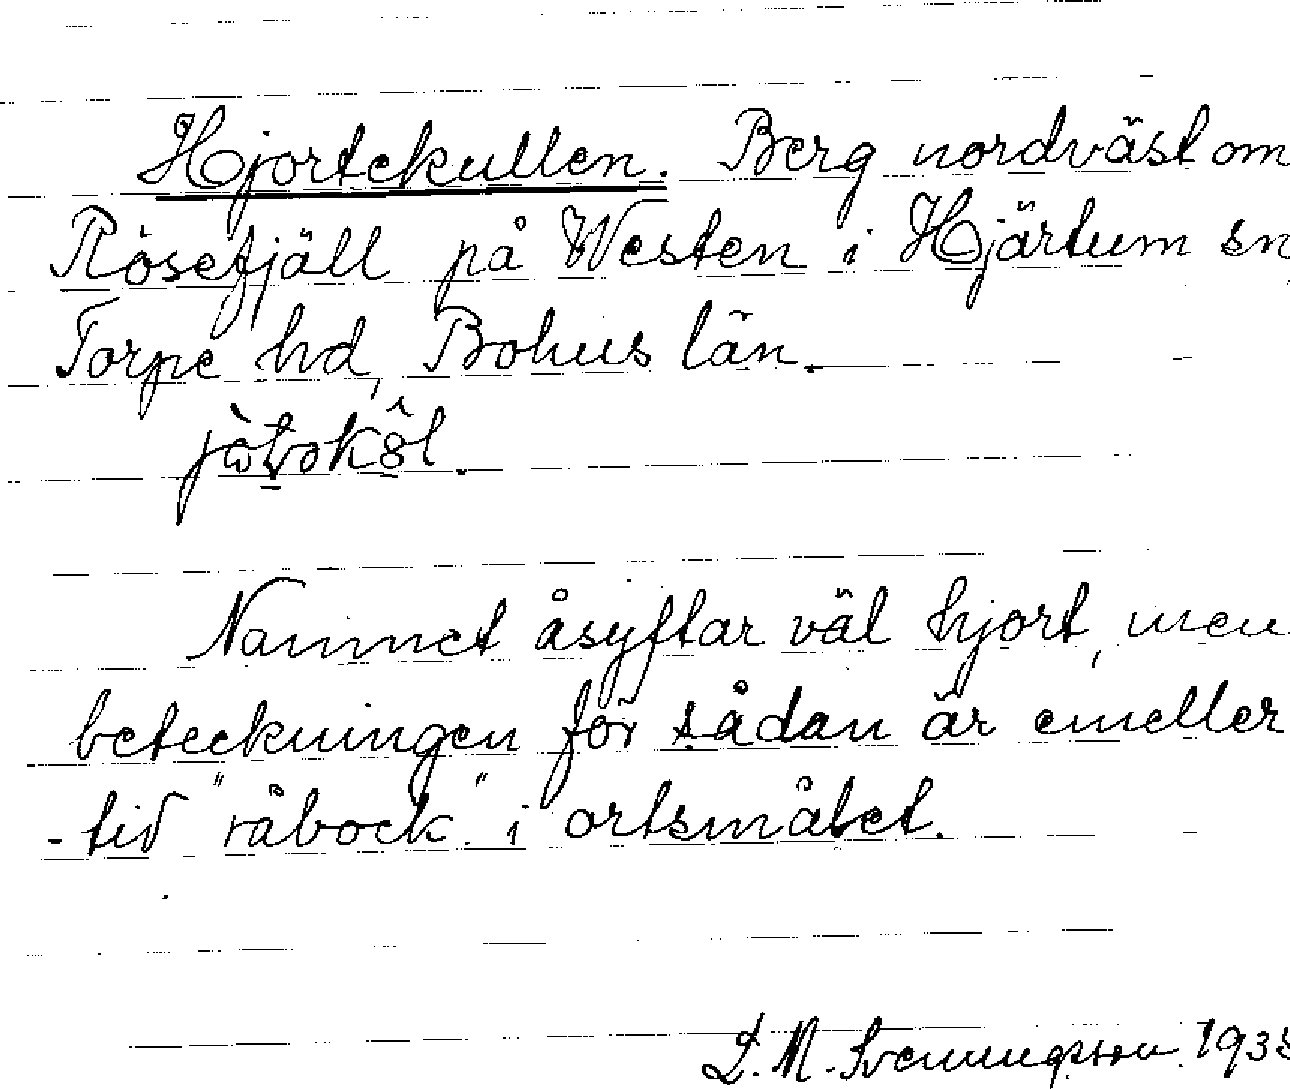 Hjortekullen. Berg nordväst om
Rösefjäll på Westen i Hjärtum sn
Torpe hd, Bohus län.
Namnet åsyftar väl hjort, men
beteckningen för sådan är emeller
-tid "råbock" i ortsmålet.
L. M. Svenungsson 193